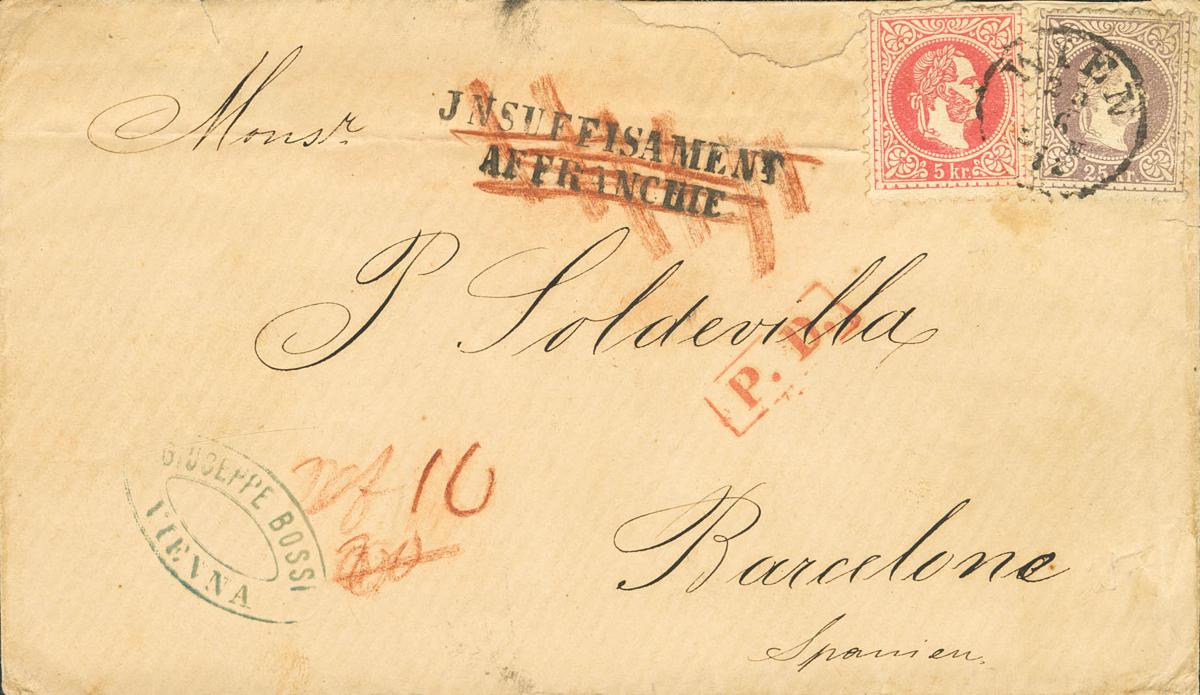 Monsr
JNSUFFISAMENT
AFFRANCHIE
5 kr.
25 kr.
WIEN
P Soldevilla
P. D.
GIUSEPPE BOSSI
VIENNA
wf 10
Barcelone
Spanien.